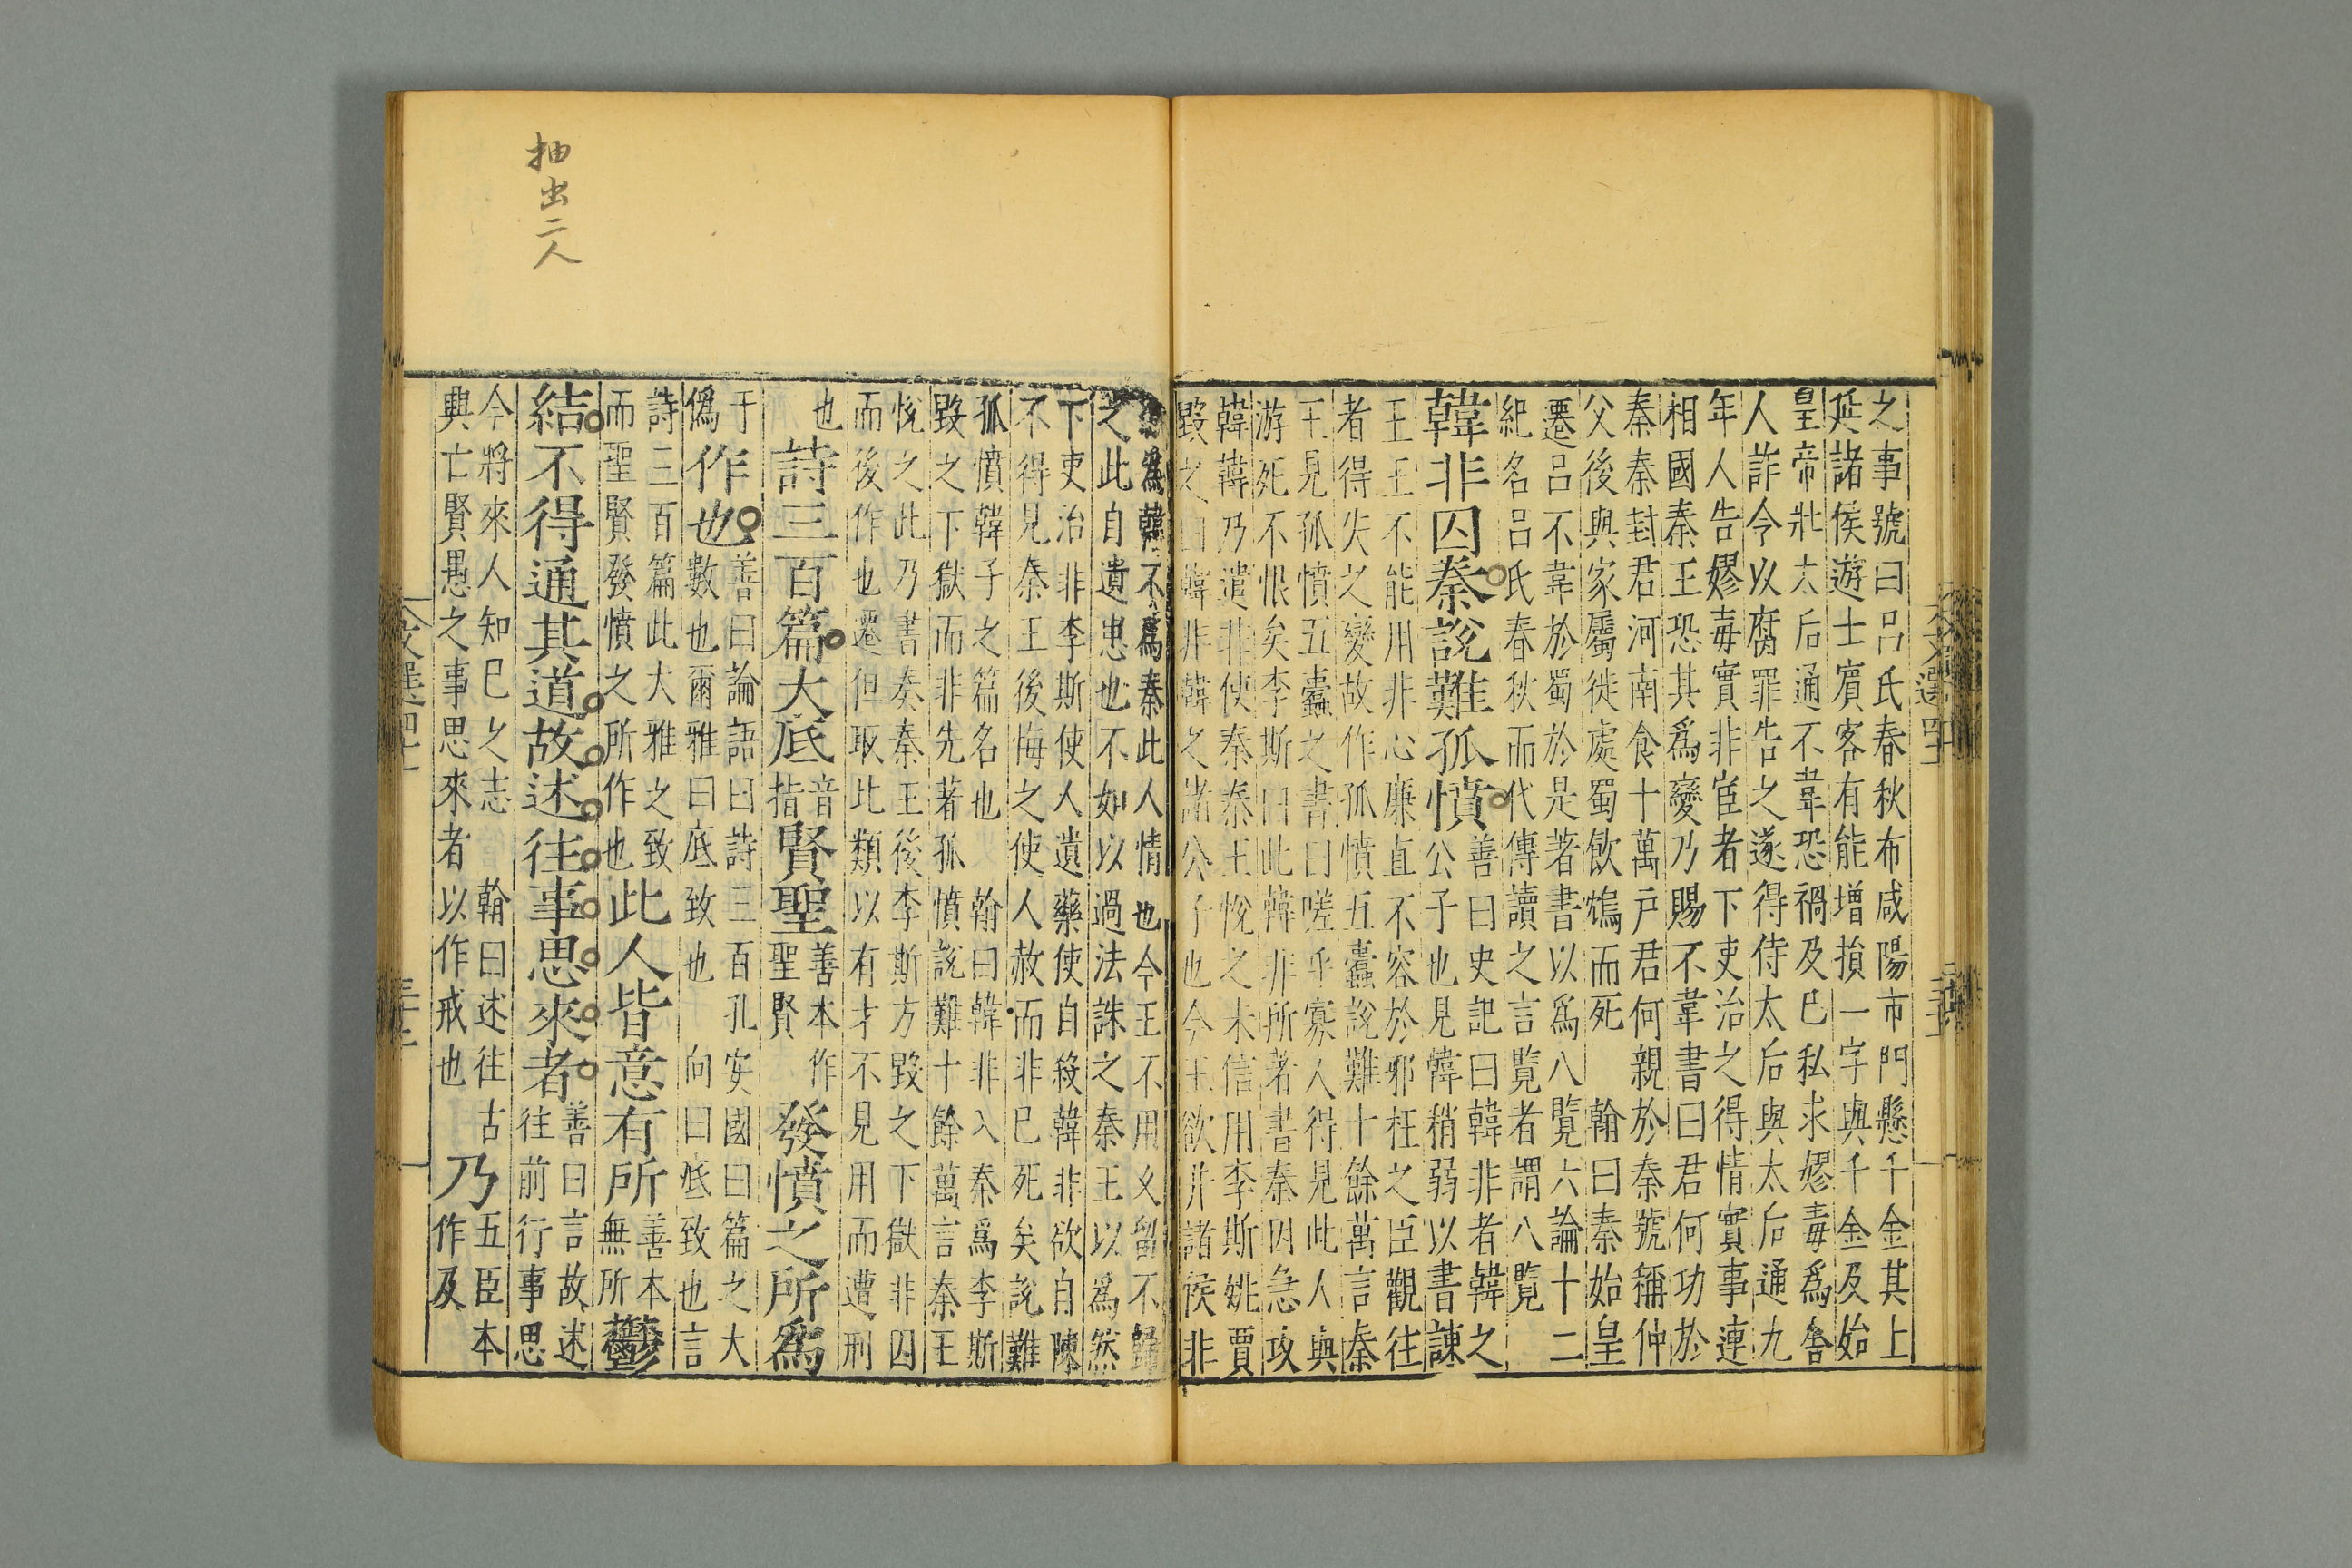 之事號曰呂氏春秋布咸陽市門懸千金其上
延諸侯遊士賔客有能增損一字與千金及始
皇帝壯太后通不韋恐禍及巳私求嫪毒爲舎
人詐令以腐罪告之遂得侍太后與太后通九
年人告嫪毒實非宦者下吏治之得情實事連
相國秦王恐其爲變乃賜不韋書曰君何功於
秦秦封君河南食十萬戸君何親於秦號稱仲
父後與家屬徙處蜀飲鴆而死 翰曰秦始皇
遷呂不韋於蜀於是著書以爲八覽六論十二
紀名呂氏春秋而代傳讀之言覽者謂八覽
韓非囚秦說難孤憤
善曰史記曰韓非者韓之
公子也見韓稍弱以書諫
王王不能用非心廉直不容於邪枉之臣觀往
者得失之變故作孤憤五蠹說難十餘萬言秦
王見孤憤五蠹之書曰嗟乎寡人得見此人與
游死不恨矣李斯曰此韓非所著書秦因急攻
韓韓乃遣非使秦秦王悅之未信用李斯姚賈
毀之曰韓非韓之諸公子也今王欲并諸侯非
爲韓不爲秦此人情也今王不用乆留不歸
之此自遺患也不如以過法誅之秦王以爲然
下吏治非李斯使人遺藥使自殺韓非欲自陳
不得見秦王後悔之使人赦而非巳死矣說難
孤憤韓子之篇名也 翰曰韓非入秦爲李斯
毀之下獄而非先著孤憤說難十餘萬言秦王
悅之此乃書奏秦王後李斯方毀之下獄非囚
而後作也遷但取此類以有才不見用而遭刑
也
詩三百篇大底
音
指
賢聖
善本作
聖賢
發憤之所爲
于
僞
作也
善曰論語曰詩三百孔安國曰篇之大
數也爾雅曰底致也 向曰底致也言
詩三百篇此大雅之致
而聖賢發憤之所作也
此人皆意有所
善本
無所
鬱
結不得通其道故述往事思來者
善曰言故述
往前行事思
今將來人知巳之志 翰曰述往古
興亡賢愚之事思來者以作戒也
乃
五臣本
作及
文選四十一
抽出二人